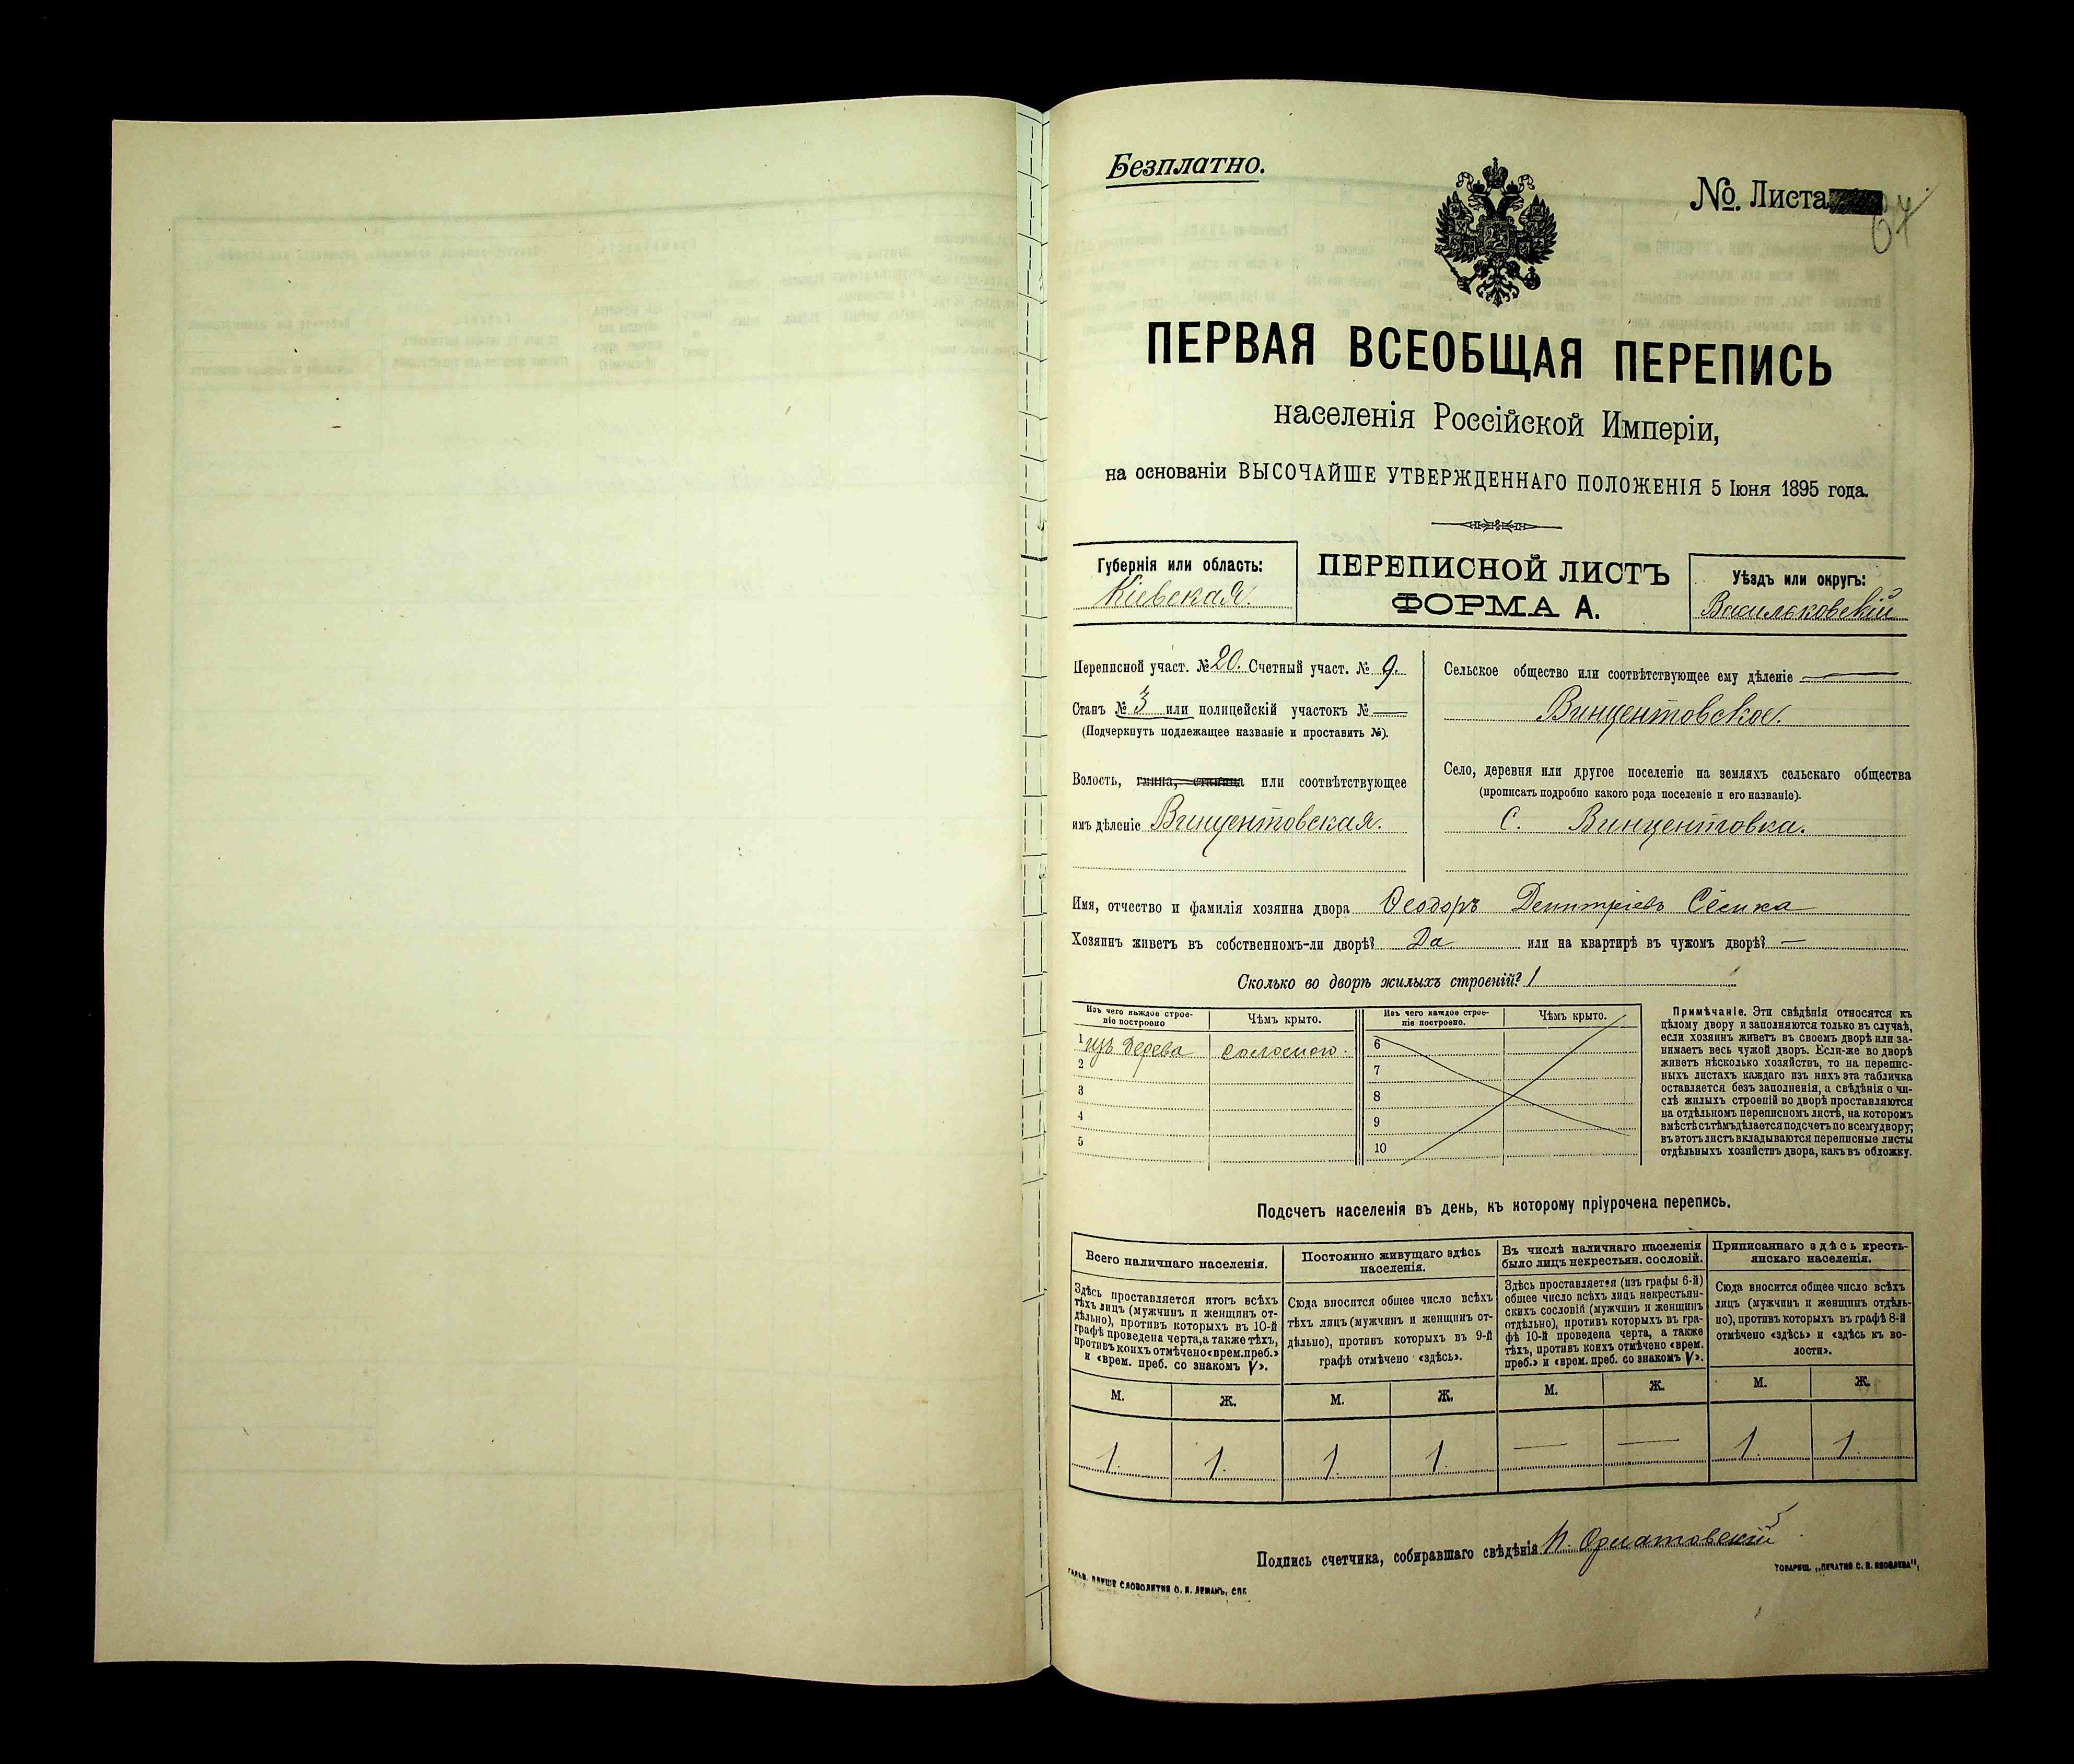 Безплатно.
№. Листа
67
ПЕРВАЯ ВСЕОБЩАЯ ПЕРЕПИСЬ
населенія Россійской Имперіи,
на основаніи ВЫСОЧАЙШЕ УТВЕРЖДЕННАГО ПОЛОЖЕНІЯ 5 Іюня 1895 года.
Губернія или область:
Кіевская.
ПЕРЕПИСНОЙ ЛИСТЪ
ФОРМА А.
Уѣздъ или округъ:
Васильковскій
Переписной участ. № 20. Счетный участ. № 9.
Станъ № 3 или полицейскій участокъ № —
(Подчеркнуть подлежащее названіе и проставить №).
Волость, гмина, станица или соотвѣтствующее
имъ дѣленіе Винцентовская.
Сельское общество или соотвѣтствующее ему дѣленіе —
Винцентовское.
Село, деревня или другое поселеніе на земляхъ сельскаго общества
(прописать подробно какого рода поселеніе и его названіе).
С. Винцентовка.
Имя, отчество и фамилія хозяина двора Ѳеодоръ Демитріевъ
Хозяинъ живетъ въ собственномъ-ли дворѣ? Да или на квартирѣ въ чужомъ дворѣ? —
Сколько во дворѣ жилыхъ строеній? 1
Изъ чего каждое строе-
ніе построено
Чѣмъ крыто.
1 изъ дерева соломою.
2
3
4
5
Изъ чего каждое строе-
ніе построено.
Чѣмъ крыто.
6
7
8
9
10
Примѣчаніе. Эти свѣдѣнія относятся къ
цѣлому двору и заполняются только въ случаѣ,
если хозяинъ живетъ въ своемъ дворѣ или за-
нимаетъ весь чужой дворъ. Если-же во дворѣ
живетъ нѣсколько хозяйствъ, то на перепис-
ныхъ листахъ каждаго изъ нихъ эта табличка
оставляется безъ заполненія, а свѣдѣнія о чи-
слѣ жилыхъ строеній во дворѣ проставляются
на отдѣльномъ переписномъ листѣ, на которомъ
вмѣстѣ съ тѣмъ дѣлается подсчетъ по всему двору;
въ этотъ листъ вкладываются переписные листы
отдѣльныхъ хозяйствъ двора, какъ въ обложку.
Подсчетъ населенія въ день, къ которому пріурочена перепись.
Всего наличнаго населенія.
Здѣсь проставляется итогъ всѣхъ
тѣхъ лицъ (мужчинъ и женщинъ от-
дѣльно), противъ которыхъ въ 10-й
графѣ проведена черта, а также тѣхъ,
противъ коихъ отмѣчено «врем. преб.»
и «врем. преб. со знакомъ V».
Постоянно живущаго здѣсь
населенія.
Сюда вносится общее число всѣхъ
тѣхъ лицъ (мужчинъ и женщинъ от-
дѣльно), противъ которыхъ въ 9-й
графѣ отмѣчено «здѣсь».
Въ числѣ наличнаго населенія
было лицъ некрестьян. сословій.
Здѣсь проставляется (изъ графы 6-й)
общее число всѣхъ лицъ некрестьян-
скихъ сословій (мужчинъ и женщинъ
отдѣльно), противъ которыхъ въ гра-
фѣ 10-й проведена черта, а также
тѣхъ, противъ коихъ отмѣчено «врем.
преб.» и «врем. преб. со знакомъ V».
Приписаннаго здѣсь кресть-
янскаго населенія.
Сюда вносится общее число всѣхъ
лицъ (мужчинъ и женщинъ отдѣль-
но), противъ которыхъ въ графѣ 8-й
отмѣчено «здѣсь» и «здѣсь къ во-
лости».
М. Ж. М. Ж. М. Ж. М. Ж.
1. 1. 1. 1. — — 1. 1.
Подпись счетчика, собиравшаго свѣдѣнія
СЛОВОЛИТНЯ О. И. ЛЕМАНЪ, СПБ
ТОВАРИЩ. „ПЕЧАТНЯ С. П. ЯКОВЛЕВА",